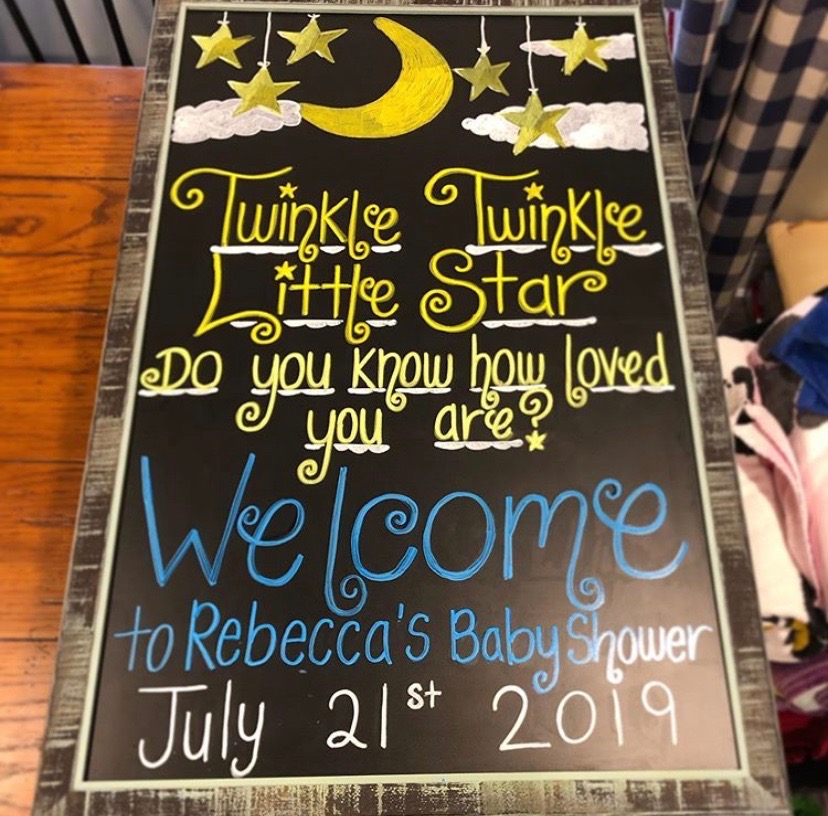 Twinkle Twinkle
Little Star
Do you know how loved
you are?
Welcome
to Rebecca's Baby Shower
July 21st 2019